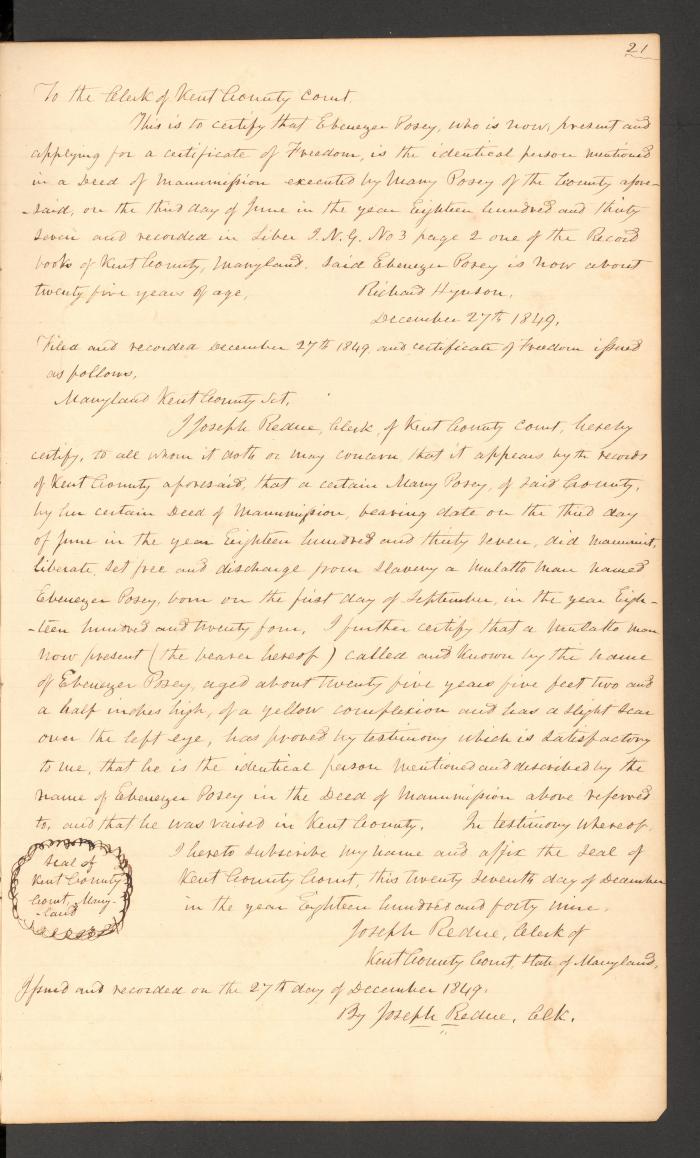 21
To the Clerk of Kent County Court,
This is to certify that Ebenezer Posey, who is now, present and
applying for a certificate of Freedom, is the identical person mentioned
in a Deed of Manumission executed by Mary Posey of the County afore-
-said, on the third day of June in the year Eighteen hundred and thirty
seven and recorded in Liber J. N. G. No 3 page 2 one of the Record
books of Kent County, Maryland. Said Ebenezer Posey is now about
twenty five years of age,
Richard Hynson.
December 27th 1849.
Filed and recorded December 27th 1849, and certificate of Freedom issued
as follows,
Maryland Kent County Sct,
I Joseph Redue, Clerk, of Kent County Court, hereby
certify, to all whom it doth or may concern, that it appears by th records
of Kent County aforesaid, that a certain Mary Posey, of said County,
by her certain Deed of Manumission, bearing date on the third day
of June in the year Eighteen hundred and thirty seven, did manumit,
liberate, set free and discharge from slavery a mulatto man named
Ebenezer Posey, born on the first day of September, in the year Eigh-
-teen hundred and twenty four, I further certify that a mulatto man
now present (the bearer hereof) called and known by the name
of Ebenezer Posey, aged about twenty five years five feet two and
a half inches high, of a yellow complexion and has a slight scar
over the left eye, has proved by testimony which is satisfactory
to me, that he is the identical person mentioned and described by the
name of Ebenezer Posey in the Deed of Manumission above referred
to, and that he was raised in Kent County. In testimony whereof,
I hereto subscribe my name and affix the seal of
Kent County Court, this twenty seventh day of December
in the year Eighteen hundred and forty nine.
Seal of
Kent County
Court, Mary-
-land
Joseph Redue, Clerk of
Kent County Court, State of Maryland,
Issued and recorded on the 27th day of December 1849.
By Joseph Redue, Clk.